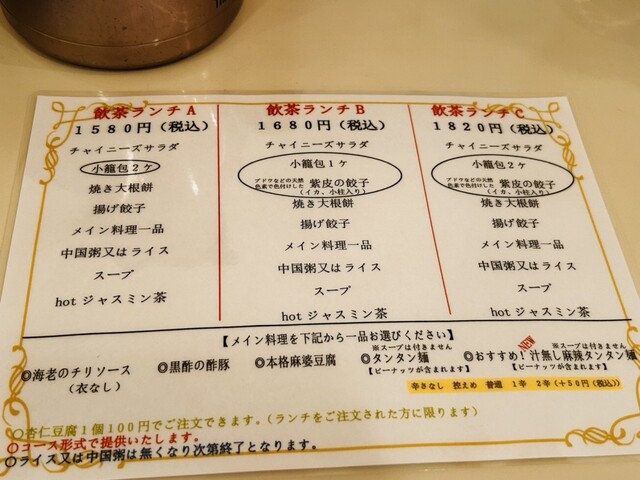 飲茶ランチA
1580円（税込）
チャイニーズサラダ
小籠包2ヶ
焼き大根餅
揚げ餃子
メイン料理一品
中国粥又はライス
スープ
hot ジャスミン茶
飲茶ランチB
1680円（税込）
チャイニーズサラダ
小籠包1ヶ
ブドウなどの天然
色素で色付けした 紫皮の餃子
（イカ、小柱入り）
焼き大根餅
揚げ餃子
メイン料理一品
中国粥又はライス
スープ
hot ジャスミン茶
飲茶ランチC
1820円（税込）
チャイニーズサラダ
小籠包2ヶ
ブドウなどの天然
色素で色付けした 紫皮の餃子
（イカ、小柱入り）
焼き大根餅
揚げ餃子
メイン料理一品
中国粥又はライス
スープ
hot ジャスミン茶
【メイン料理を下記から一品お選びください】
◎海老のチリソース
（衣なし）
◎黒酢の酢豚
◎本格麻婆豆腐
※スープは付きません
◎タンタン麺
（ピーナッツが含まれます）
NEW
※スープは付きません
◎おすすめ！汁無し麻辣タンタン麺
（ピーナッツが含まれます）
辛さなし 控えめ 普通 1辛 2辛（＋50円（税込））
○杏仁豆腐1個100円でご注文できます。（ランチをご注文された方に限ります）
○コース形式で提供いたします。
○ライス又は中国粥は無くなり次第終了となります。